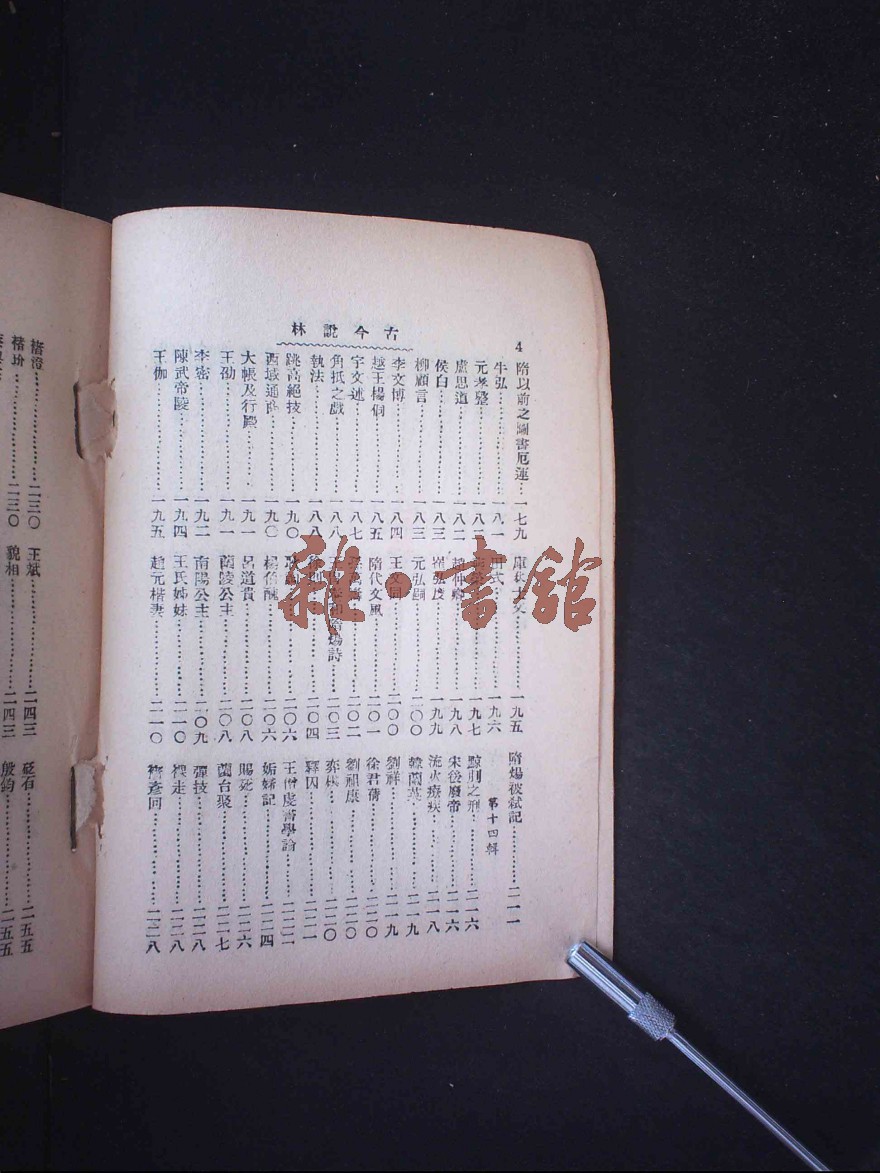 古今說林
4
隋以前之圖書厄運…一七九
牛弘…一八一
元孝整…一八一
盧思道…一八二
侯白…一八三
柳顧言…一八三
李文博…一八四
越王楊侗…一八五
宇文述…一八七
角抵之戲…一八八
執法…一八八
跳高絕技…一九〇
西域通商…一九〇
大帳及行殿…一九一
王劭…一九一
李密…一九二
陳武帝陵…一九四
王伽…一九五
庫狄士文…一九五
田式…一九六
一九七
趙仲卿…一九八
崔弘度…一九九
元弘嗣…二〇〇
王文同…二〇〇
隋代文風…二〇一
二〇二
隋煬詩…二〇三
徐則…二〇四
二〇六
楊伯醜…二〇六
呂道貴…二〇八
蘭陵公主…二〇八
南陽公主…二〇九
王氏姊妹…二一〇
趙元楷妻…二一〇
隋煬被弒記…二一一
第十四輯
黥刖之刑…二一六
宋後廢帝…二一六
流火療疾…二一八
韓蘭英…二一九
劉祥…二一九
徐君蒨…二二〇
劉祖康…二二〇
弈棋…二二〇
釋囚…二二一
王僧虔書學論…二二二
妬婦記…二二四
賜死…二二六
蘭台聚…二二七
彈技…二二八
褚彥回…二二八
走…二二八
褚澄…二三〇
褚玠…二三〇
王斌…二四三
貌相…二四三
砭石…二五五
殷鈞…二五五
雜·書館